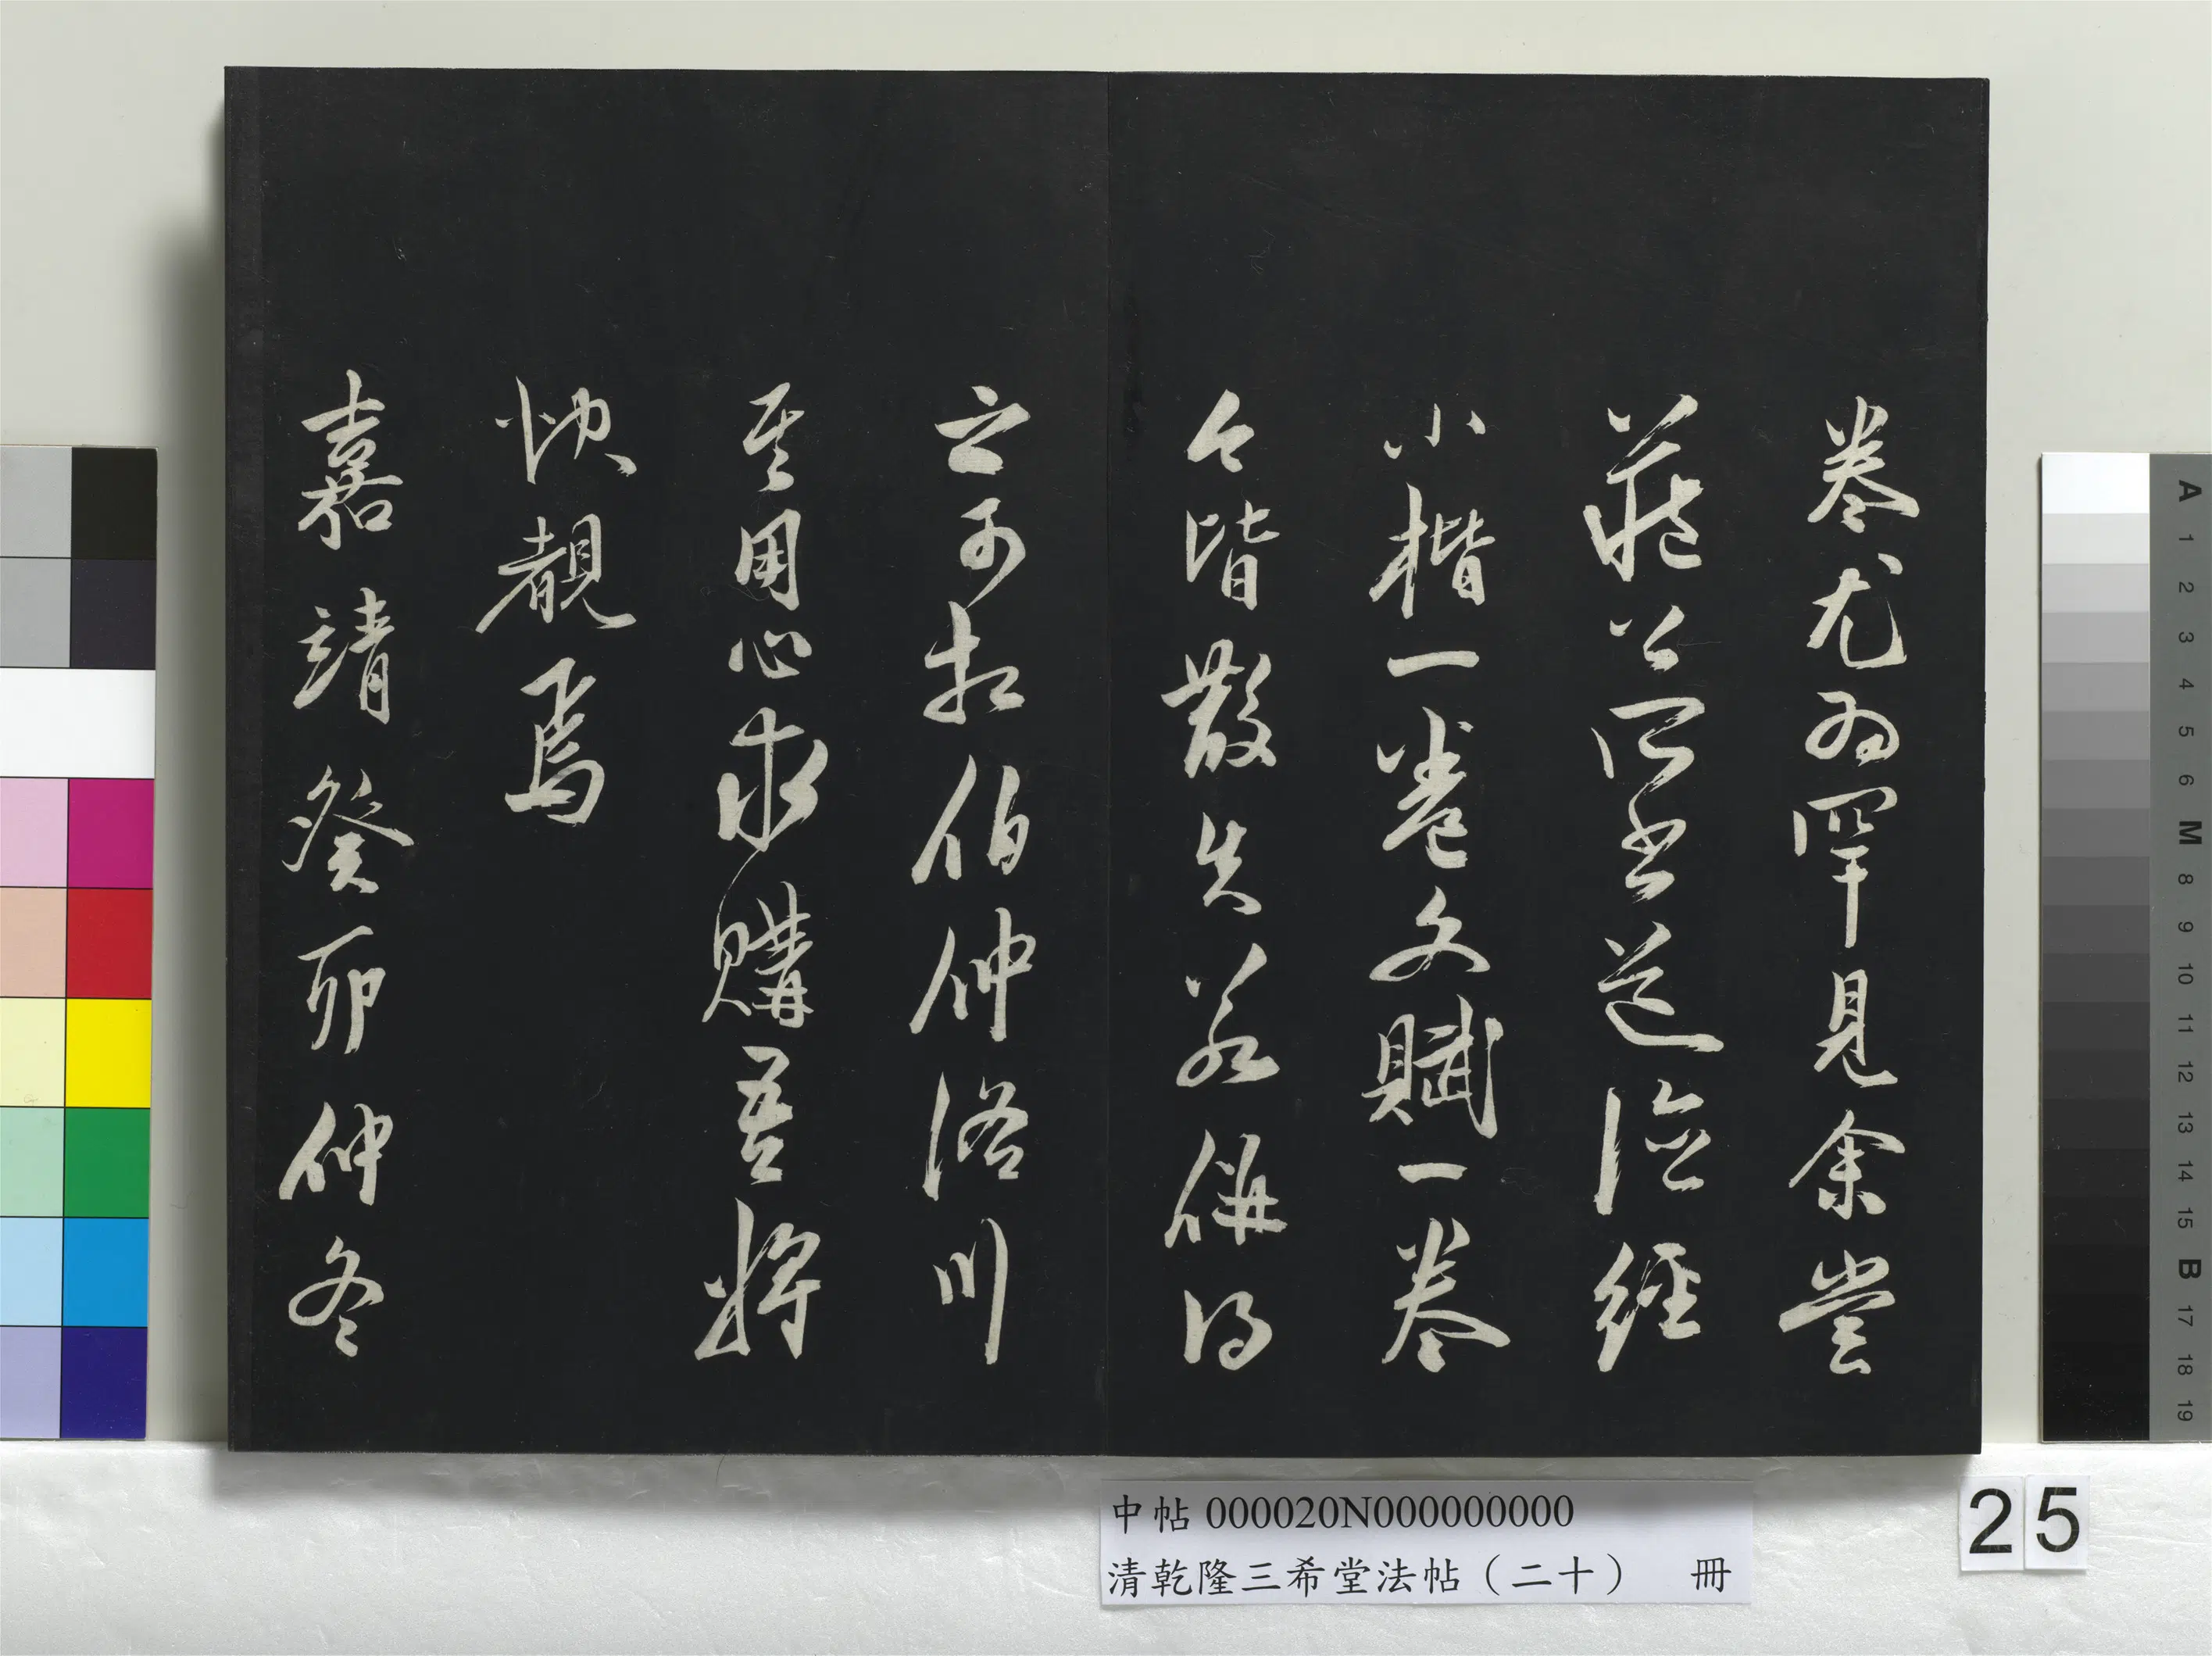 卷尤為罕見余嘗
藏公所書道德經
小楷一卷文賦一卷
今皆散失若併得
之可相伯仲洛川
其用心求購吾將
快覩焉
嘉靖癸卯仲冬
中帖 000020N000000000
清乾隆三希堂法帖（二十） 冊
25
A 1 2 3 4 5 6 M 8 9 10 11 12 13 14 15 B 17 18 19